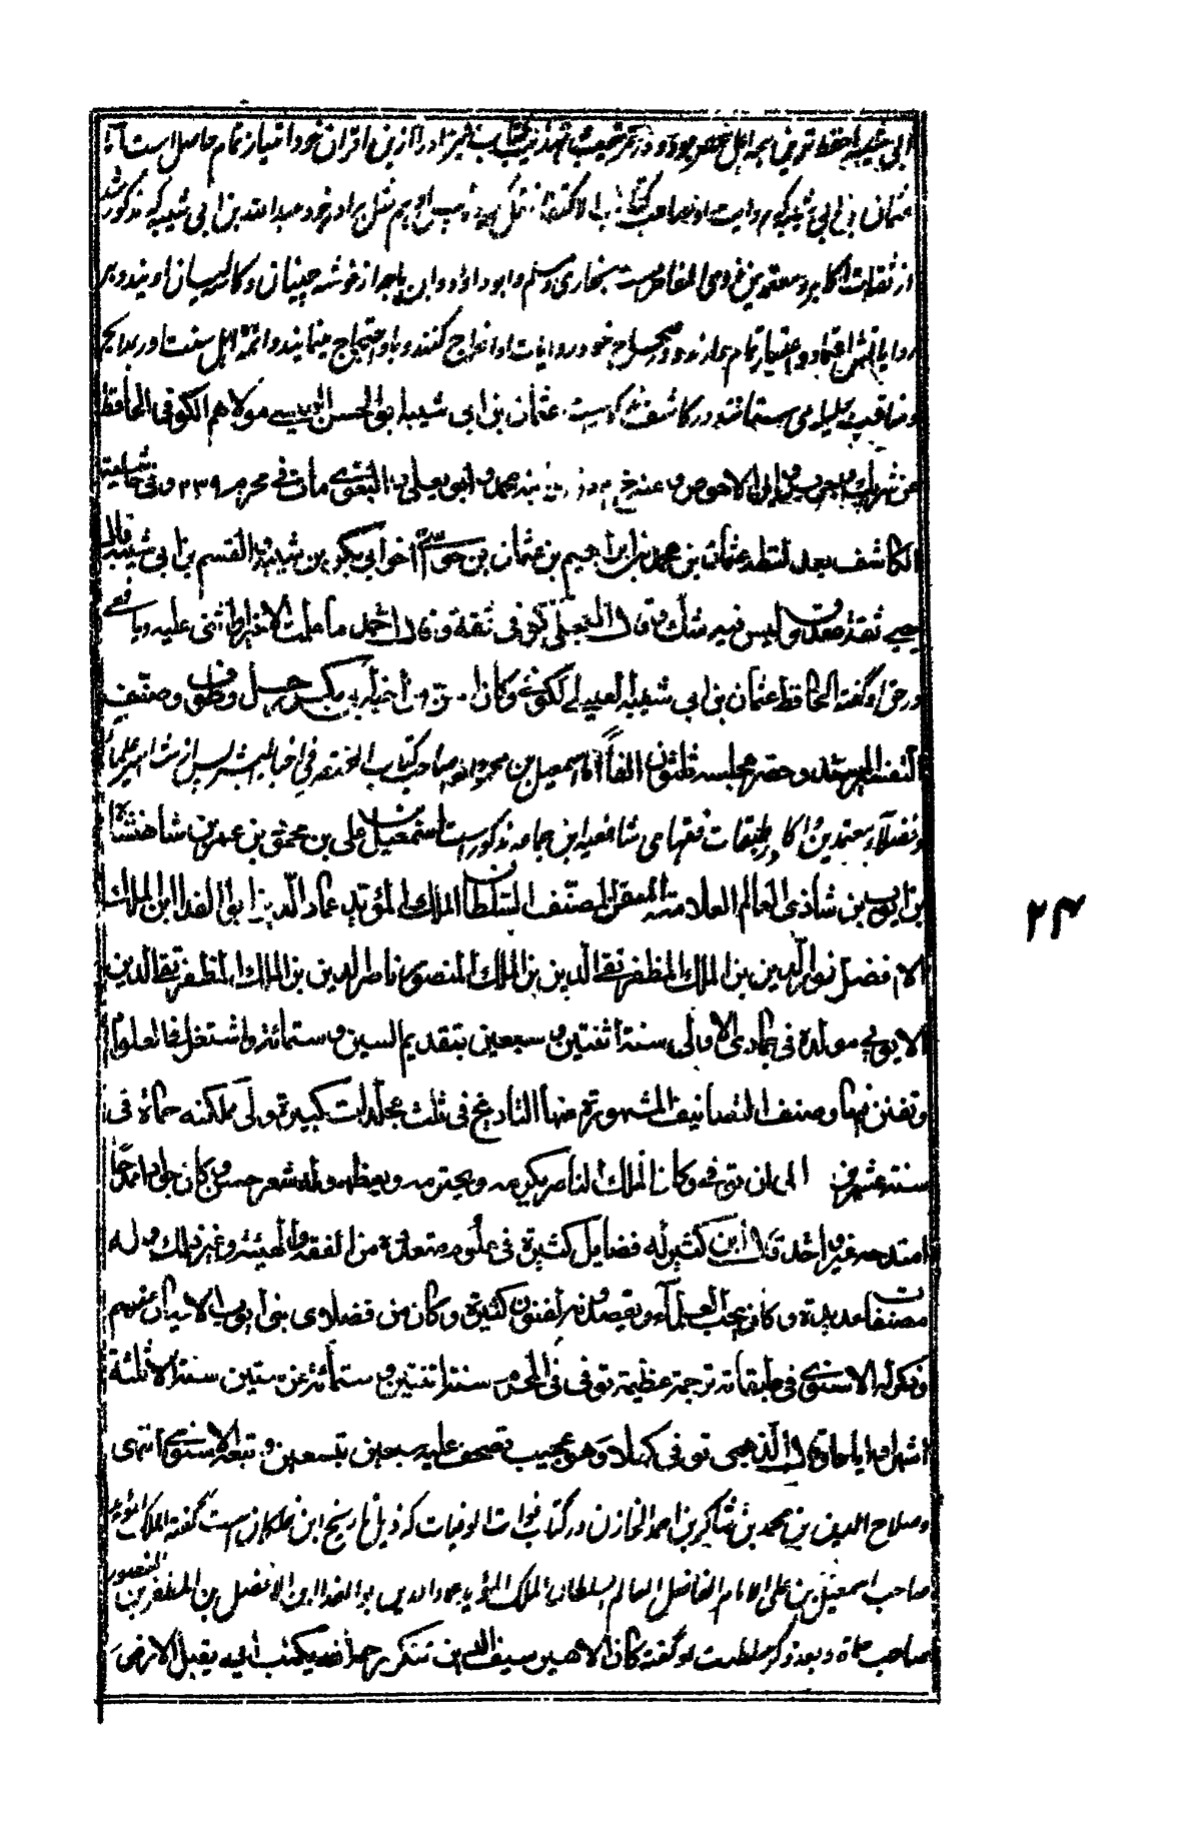 عثمان بن ابی شیبه که روایت او صاحب مثل برادر خود عبدالله بن ابی شیبه که مذکور شد
از ثقات اکابر و معتمدین بخاری و مسلم و ابو داؤد و ابن ماجه از خوشه چینان و کاسه لیسان اویند و بر
روایاتش اعتماد و اعتبار تمام دارند و در صحاح خود روایات او اخراج کنند و باو احتجاج مینمایند و ائمه اهل سنت او را بمدائح
و مناقب جلیله می ستایند در کاشف مذکور ست عثمان بن ابی شیبه ابو الحسن العبسی مولاهم الکوفی الحافظ
عن شریک و جریر و ابی الاحوص و عنه خ م د ق و ابو یعلی و البغوی مات فی محرم ۲۳۹ و فی حاشیة
الکاشف بعد لفظ عثمان بن محمد بن ابراهیم بن عثمان بن خواستی اخو ابی بکر بن شیبه و القسم بن ابی شیبه قال
یحیی ثقة صدوق لیس فیه شک و قال العجلی کوفی ثقة و قال احمد ما علمت الا خیرا و اثنی علیه و یافعی
در مرآة گفته الحافظ عثمان بن ابی شیبه العبسی الکوفی و کان اسن من اخیه ابی بکر رحل و طوف و صنف
التفسیر و المسند و حضر مجلسه ثلثون الفا اما اسمعیل بن محمود صاحب کتاب المختصر فی اخبار البشر پس از مشاهیر علماء
و فضلاء معتمدین و اکابر در طبقات فقهای شافعیه ابن جماعه مذکور است اسمعیل بن علی بن محمود بن عمر بن شاهنشاه
بن ایوب بن شاذی العالم العلامة المفنن المصنف السلطان الملک المؤید عماد الدین ابو الفدا ابن الملک
الافضل نور الدین بن الملک المظفر تقی الدین بن الملک المنصور ناصر الدین بن الملک المظفر تقی الدین
الایوبی مولده فی جمادی الاولی سنة اثنتین و سبعین بتقدیم السین و ستمائة و اشتغل فی العلوم
و تفنن فیها و صنف التصانیف المشهورة منها التاریخ فی ثلث مجلدات کبیرة و ولی مملکة حماة فی
سنة عشرین الی ان توفی و کان الملک الناصر یکرمه و یحترمه و یعظمه و له شعر حسن و کان جوادا ممدحا
امتدحه غیر واحد قال ابن کثیر له فضایل کثیرة فی علوم متعددة من الفقه و الهیئة و غیر ذلک و له
مصنفات عدیدة و کان یحب العلماء و یقصدونه لفنون کثیرة و کان من فضلاء بنی ایوب الاعیان منهم
و ذکر له الاسنوی فی طبقاته ترجمة عظیمة توفی فی المحرم سنة اثنتین و ستمائة عن ستین سنة الا ثلثة
اشهر و ایاما و قال الذهبی توفی کهلا و هو عجیب تصحف علیه سبعین بتسعین و تبعه الاسنوی انتهی
و صلاح الدین بن محمد بن شاکر بن احمد الخازن در کتاب فوات الوفیات که ذیل تاریخ ابن خلکان است گفته الملک المؤید
صاحب اسمعیل بن علی الامام الفاضل العالم السلطان الملک المؤید عماد الدین ابو الفدا ابن الافضل بن المظفر بن المنصور
صاحب حماة و بعد ذکر سلطنت او گفته کان الامیر سیف الدین تنکز رحمه الله یکتب الیه یقبل الارض
۲۴